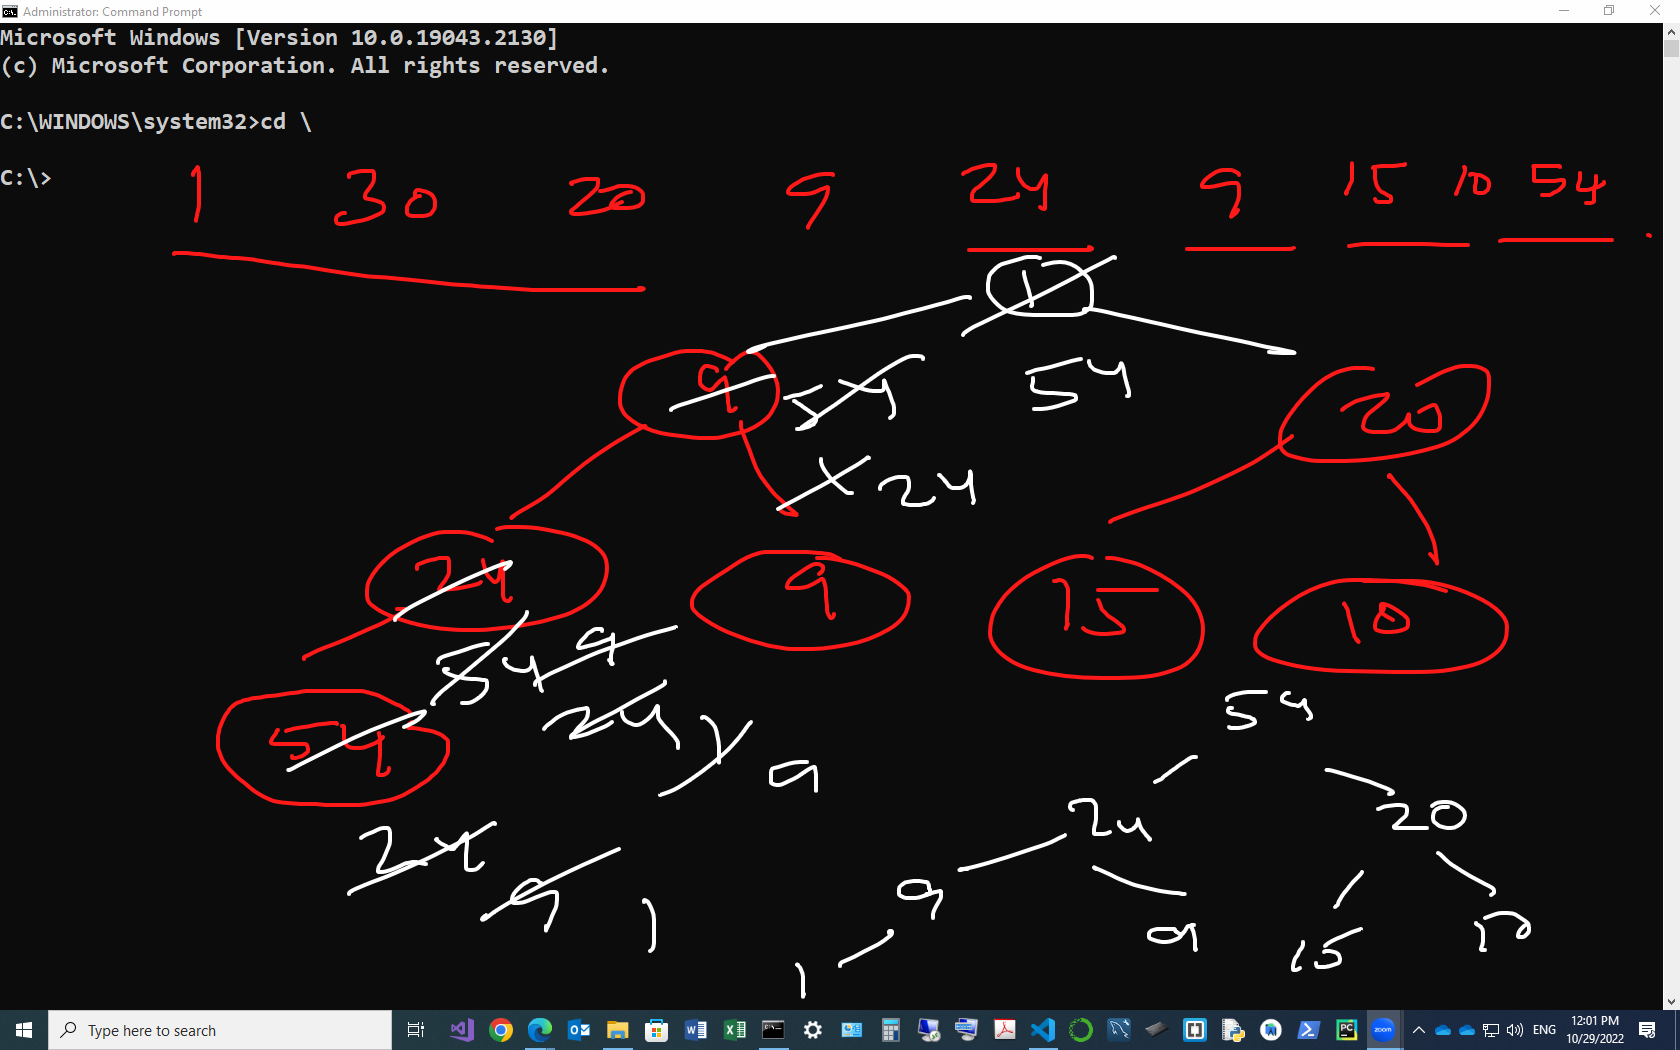 Administrator: Command Prompt
Microsoft Windows [Version 10.0.19043.2130]
(c) Microsoft Corporation. All rights reserved.
C:\WINDOWS\system32>cd \
C:\>
1 30 20 9 24 9 15 10 54
1
9 54 54 20
24
24 9 15 10
54 9
54 24 1 9 54
24 9 1 24 20
9 9 15 10
1
Type here to search
ENG
12:01 PM
10/29/2022
zoom